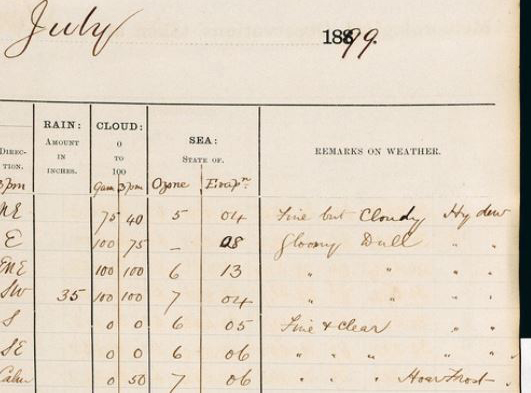 July 1899.
RAIN: CLOUD: SEA:
AMOUNT IN INCHES. 0 TO 100 STATE OF. REMARKS ON WEATHER.
DIREC-
TION.
3pm 9am 3pm Ozone Evapn
NE 75 40 5 04 Fine but Cloudy Hy dew
E 100 75 – 08 Gloomy Dull " "
ENE 100 100 6 13 " " " "
SW 35 100 100 7 04 " " " "
S 0 0 6 05 Fine & Clear " "
SE 0 0 6 06 " " " " "
Calm 0 50 7 06 " " " Hoar Frost